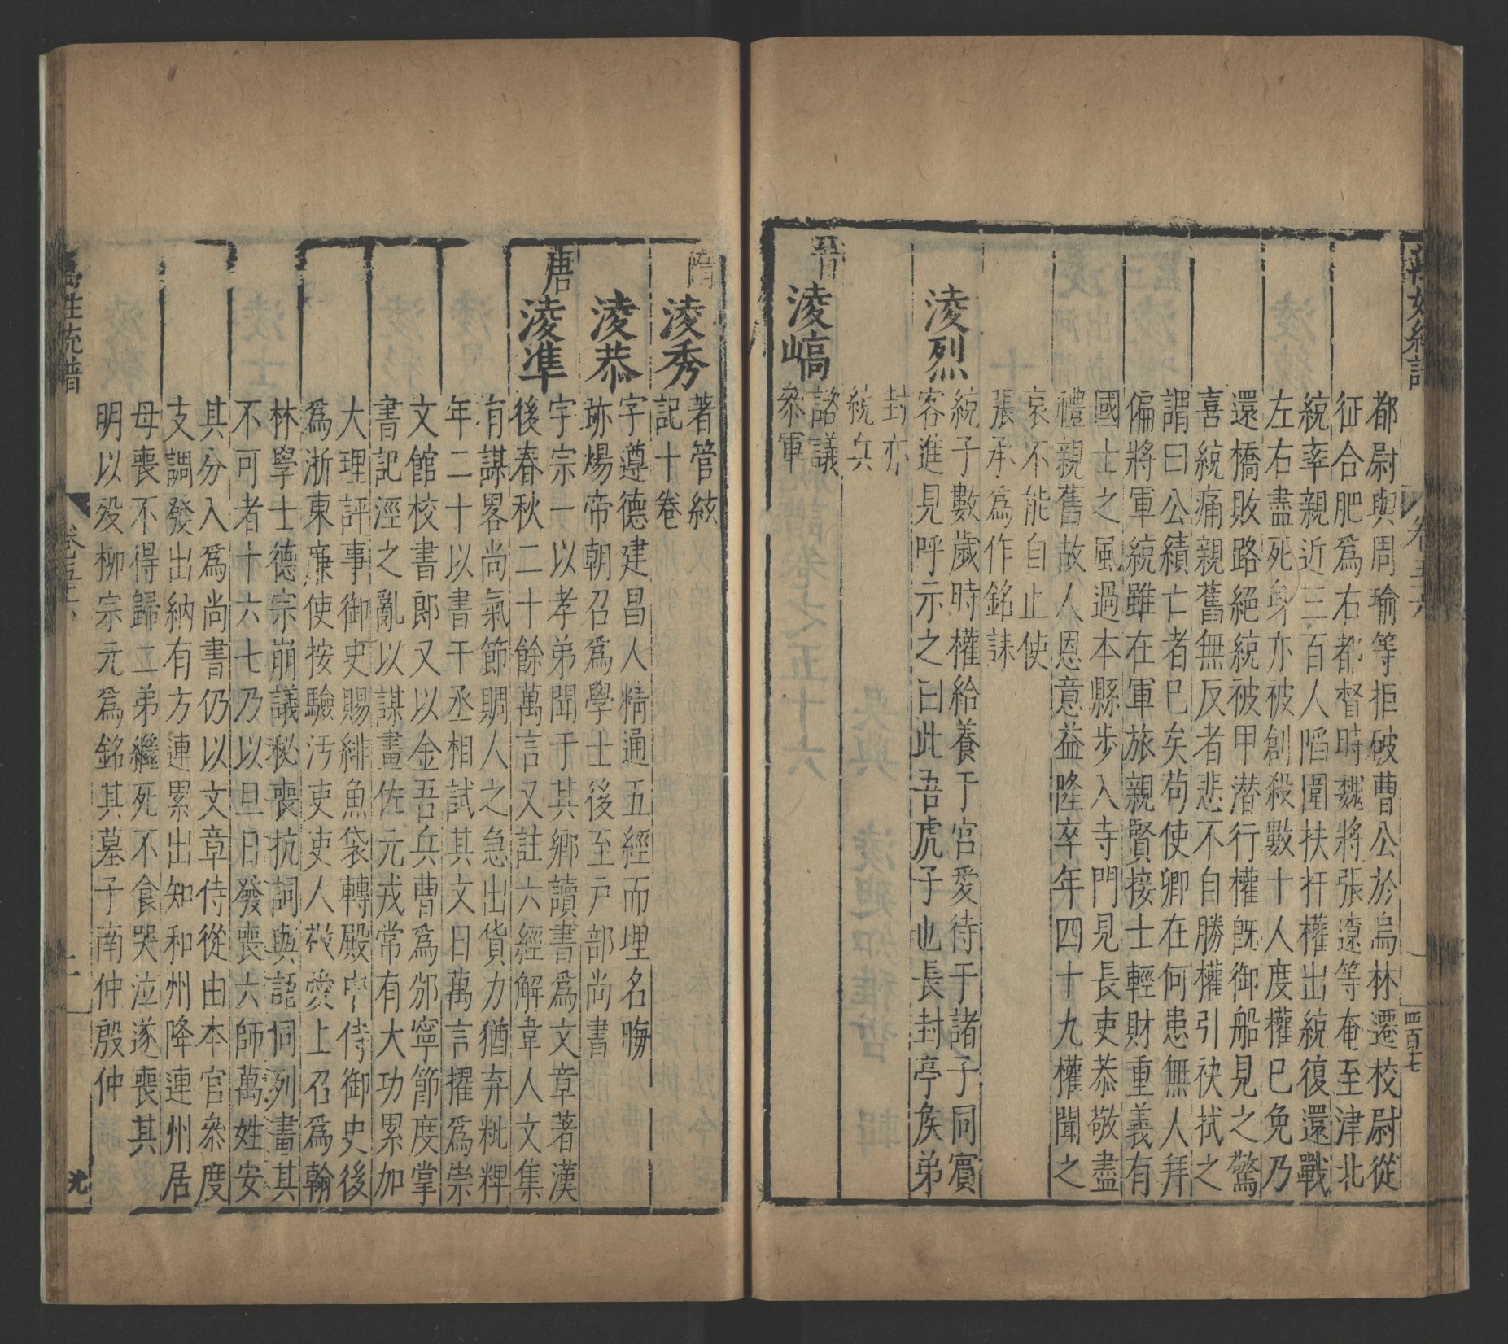 都尉與周瑜等拒破曹公於烏林遷校尉從
征合肥爲右都督時魏將張遼等奄至津北
統率親近三百人陷圍扶扞權出統復還戰
左右盡死身亦被創殺數十人度權已免乃
還橋敗路絕統被甲潜行權旣御船見之驚
喜統痛親舊無反者悲不自勝權引袂拭之
謂曰公績亡者已矣苟使卿在何患無人拜
偏將軍統雖在軍旅親賢接士輕財重義有
國士之風過本縣步入寺門見長吏恭敬盡
禮親舊故人恩意益隆卒年四十九權聞之
哀不能自止使
張承爲作銘誄
凌烈
統子數歲時權給養于宮愛待于諸子同賓
客進見呼示之曰此吾虎子也長封亭矦弟
封亦
統兵
晉
凌嵪
諮議
叅軍
卷五十六
四百七
隋
凌秀
著管絃
記十卷
凌恭
字遵德建昌人精通五經而埋名晦
跡煬帝朝召爲學士後至戸部尚書
唐
凌準
字宗一以孝弟聞于其鄉讀書爲文章著漢
後春秋二十餘萬言又註六經解韋人文集
有謀畧尚氣節賙人之急出貨力猶弃粃粺
年二十以書干丞相試其文日萬言擢爲崇
文館校書郎又以金吾兵曹爲邠寧節度掌
書記涇之亂以謀畫佐元戎常有大功累加
大理評事御史賜緋魚袋轉殿中侍御史後
爲浙東廉使按驗汚吏吏人敬愛上召爲翰
林學士德宗崩議秘喪抗詞與語同列畵其
不可者十六七乃以旦日發喪六師萬姓安
其分入爲尚書仍以文章侍從由本官叅度
支調發出納有方連累出知和州降連州居
母喪不得歸二弟繼死不食哭泣遂喪其
明以殁柳宗元爲銘其墓子南仲殷仲
萬姓統譜
卷五十六